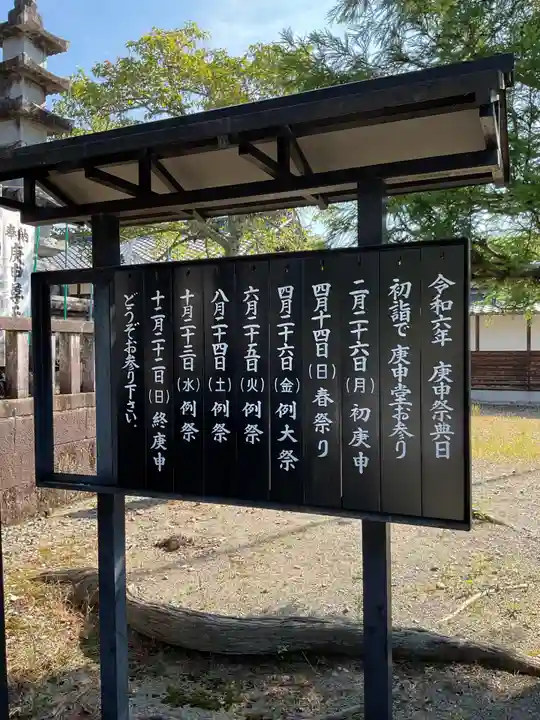 令和六年 庚申祭典日
初詣で 庚申堂お参り
二月二十六日(月)初庚申
四月十四日(日)春祭り
四月二十六日(金)例大祭
六月二十五日(火)例祭
八月二十四日(土)例祭
十月二十三日(水)例祭
十二月二十二日(日)終庚申
どうぞお参り下さい。
奉納